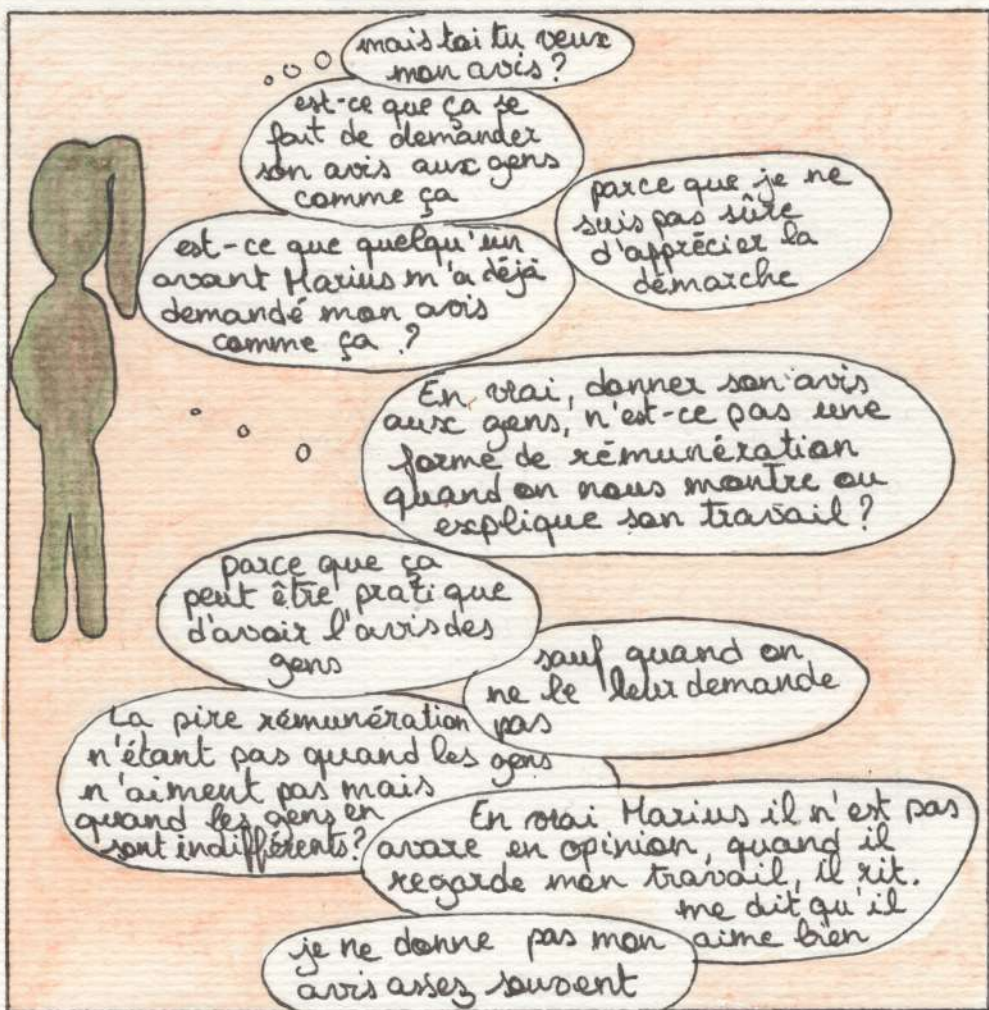 mais toi tu veux
mon avis?
est-ce que ça se
fait de demander
son avis aux gens
comme ça
parce que je ne
suis pas sûre
d'apprécier la
démarche
est-ce que quelqu'un
avant Marius m'a déjà
demandé mon avis
comme ça ?
En vrai, donner son avis
aux gens, n'est-ce pas une
forme de rémunération
quand on nous montre ou
explique son travail?
parce que ça
peut être pratique
d'avoir l'avis des
gens
sauf quand on
ne le leur demande
pas
La pire rémunération
n'étant pas quand les gens
n'aiment pas mais
quand les gens en
sont indifférents?
En vrai Marius il n'est pas
avare en opinion, quand il
regarde mon travail, il rit.
me dit qu'il
aime bien
je ne donne pas mon
avis assez souvent